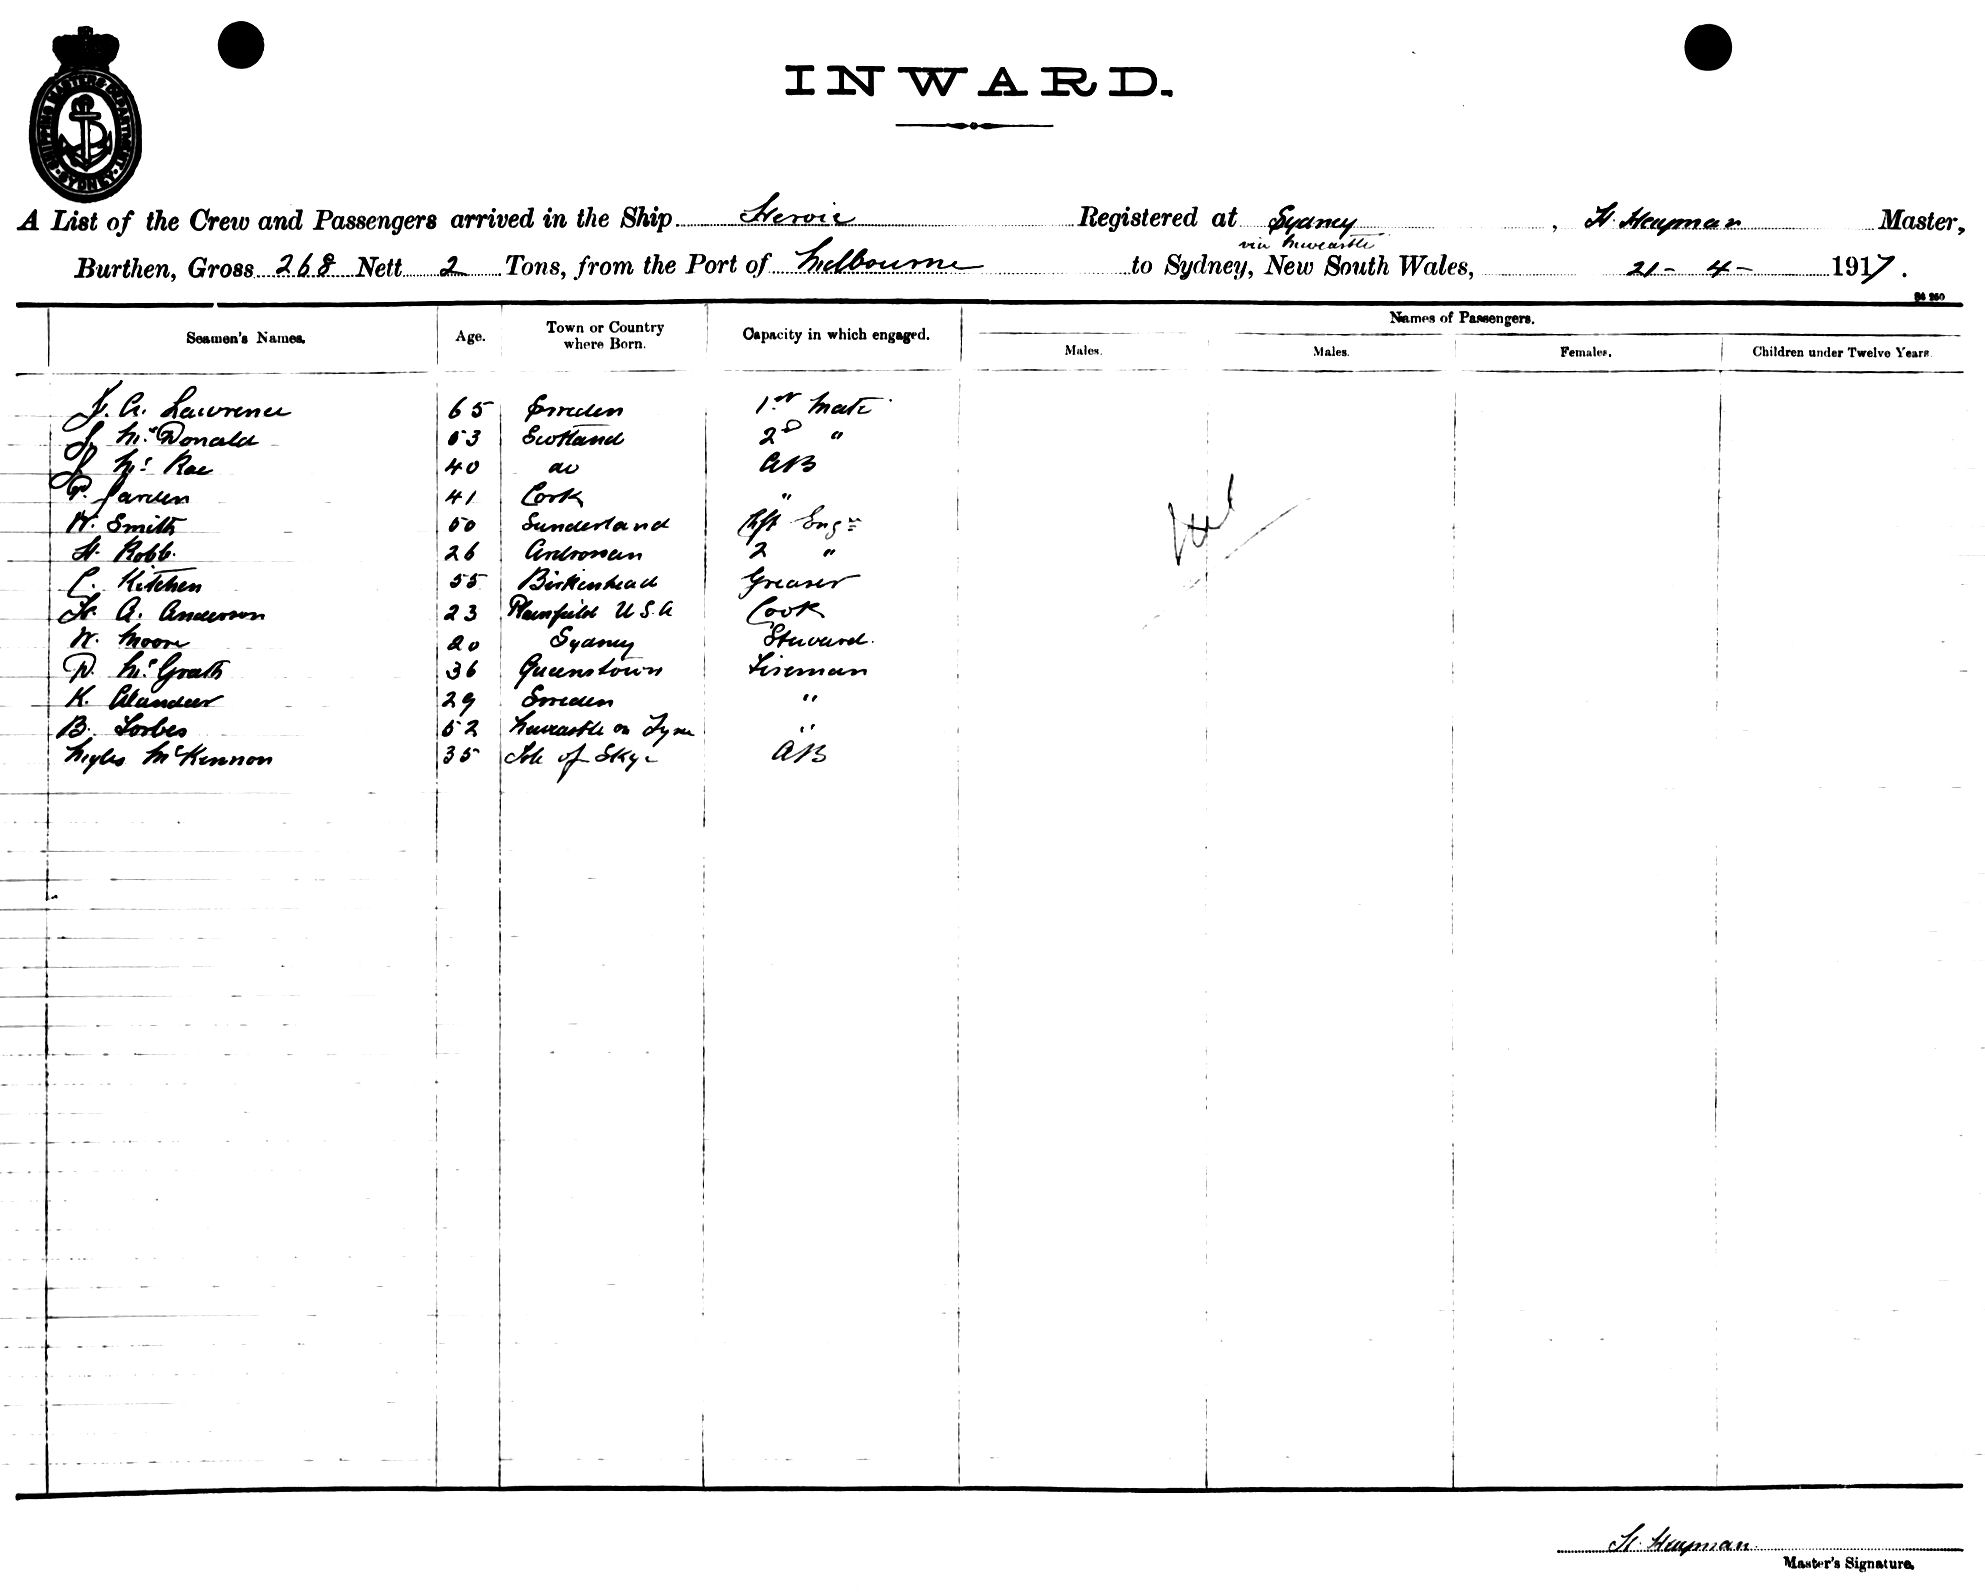 SHIPPING MASTERS DEPARTMENT SYDNEY
INWARD.
A List of the Crew and Passengers arrived in the Ship Heroic Registered at Sydney, H. Hayman Master,
via Newcastle
Burthen, Gross 268 Nett 2 Tons, from the Port of Melbourne to Sydney, New South Wales, 21 - 4 - 1917.
Seamen's Names. Age. Town or Country where Born. Capacity in which engaged. Names of Passengers.
Males. Males. Females. Children under Twelve Years.
J. A. Lawrence 65 Sweden 1st Mate
J. McDonald 53 Scotland 2D "
J McRae 40 do AB
P. Jarden 41 Cork "
W. Smith 50 Sunderland Chf Engr
H. Robb. 26 Ardrossan 2 "
C. Kitchen 55 Birkenhead Greaser
H. A. Anderson 23 Plainfield U.S.A Cook
W. Moore 20 Sydney Steward.
D. McGrath 36 Queenstown Fireman
K. Alandeer 29 Sweden "
B. Forbes 52 Newcastle on Tyne "
Myles McKennon 35 Isle of Skye AB
Nil
H. Hayman
Master's Signature.